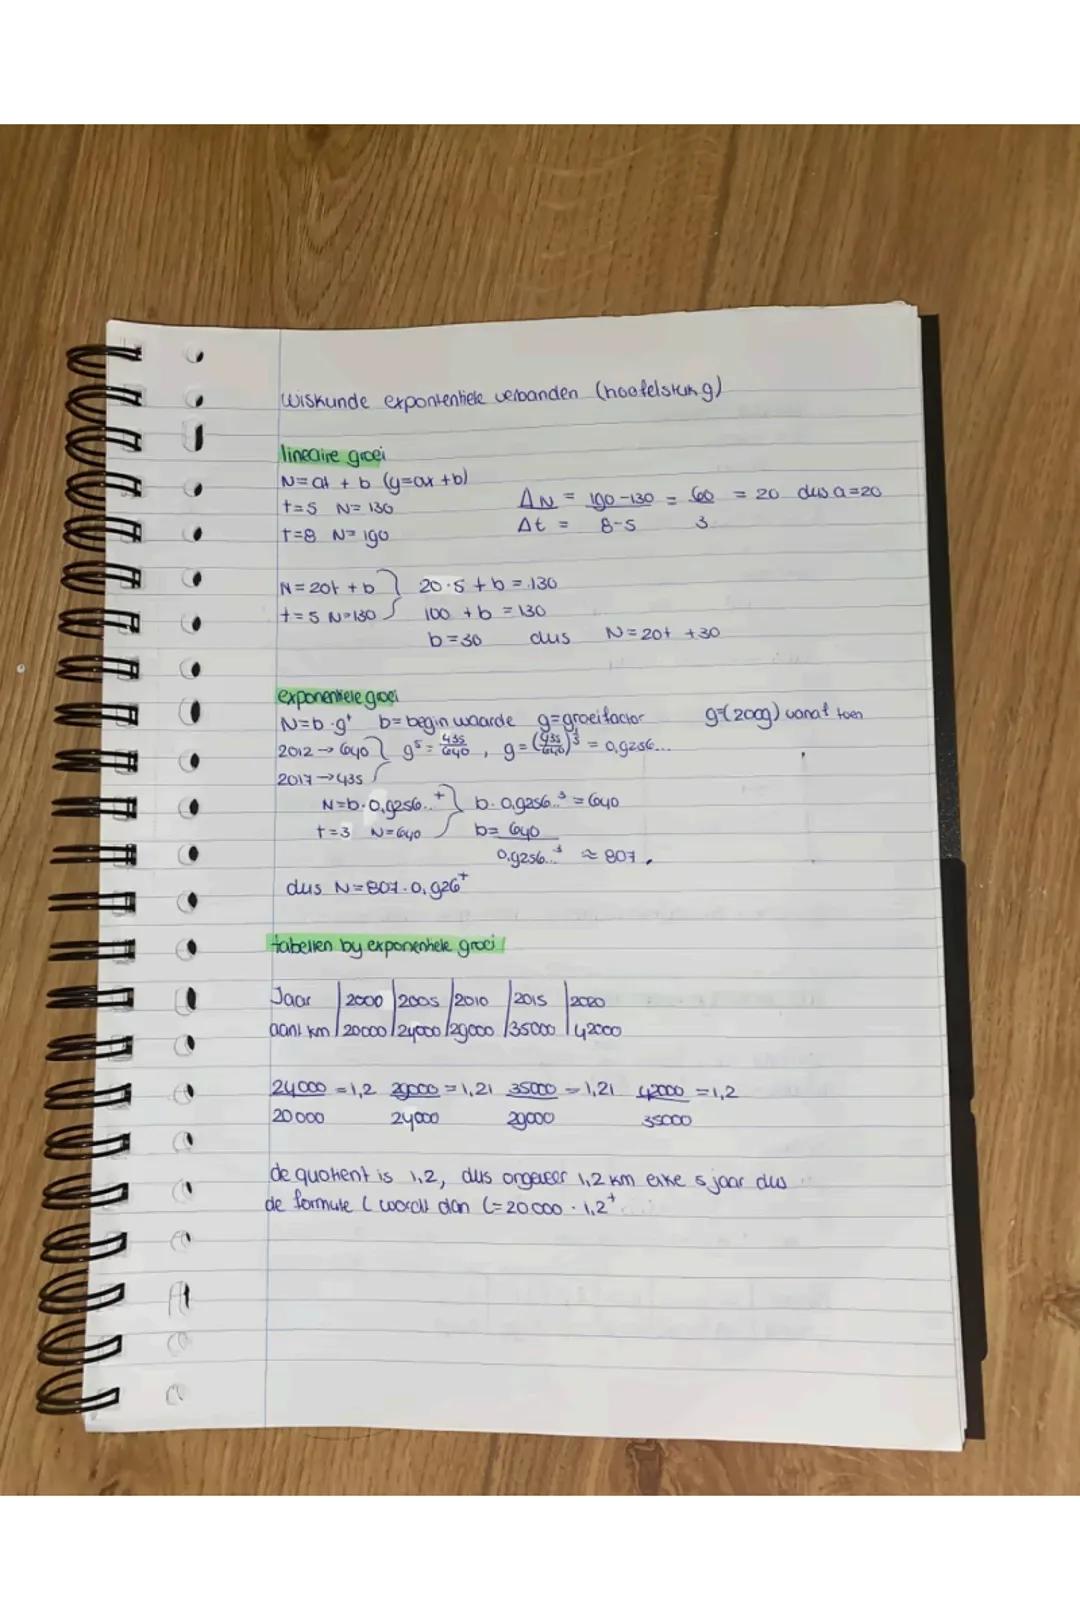 wiskunde exponentiele verbanden (hoofdstuk 9)
lineaire groei
N=at + b (y=ax+b)
t=5 N=130
t=8 N=190
ΔN = 190-130 = 60 = 20 dus a=20
Δt = 8-5 3
N=20t + b } 20·5 + b = 130
t=5 N=130 100 + b = 130
b=30 dus N=20t +30
exponentiele groei
N=b·g^t b=beginwaarde g=groeifactor g=(2009) vanaf toen
2012→640 } g^5 = 435/640 , g=(435/640)^ = 0,9256...
2017→435
N=b·0,9256..^t } b·0,9256..^3 = 640
t=3 N=640 b= 640
0,9256..^3 ≈ 807
dus N=807·0,926^t
tabellen by exponentiele groei
Jaar 2000 2005 2010 2015 2020
aant km 20000 24000 29000 35000 42000
24000 =1,2 29000 =1,21 35000 =1,21 42000 =1,2
20000 24000 29000 35000
de quotient is 1,2, dus ongeveer 1,2 km elke 5 jaar dus
de formule L wordt dan L=20000·1,2^t